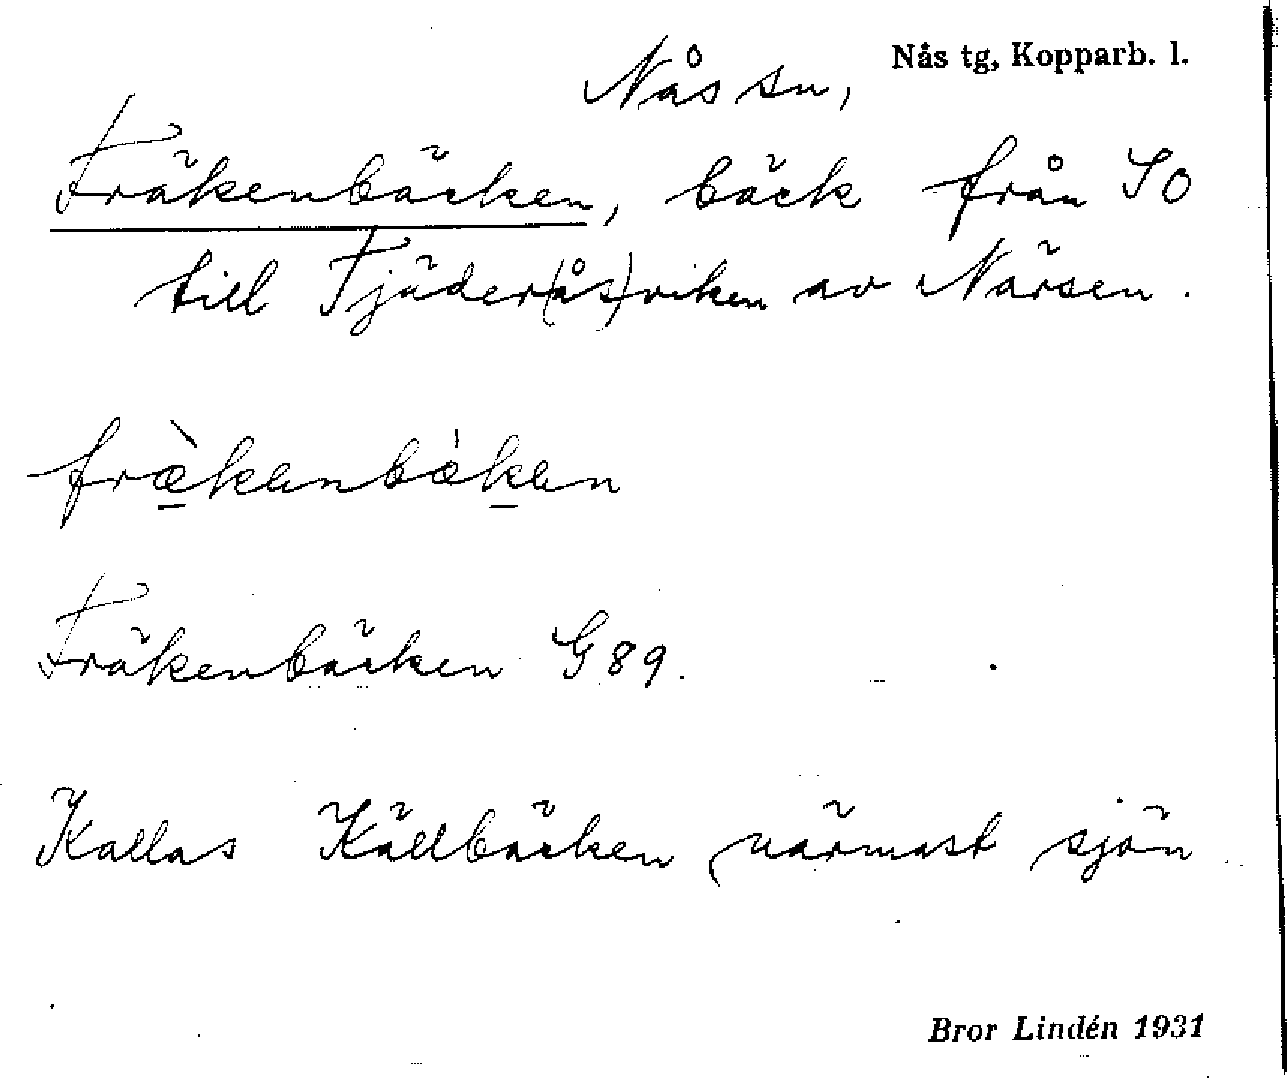 Nås sn, Nås tg, Kopparb. l.
Fräkenbäcken, bäck från SO
till Fjäder(ås)viken av Närsen.
fræ̀kənbækən
Fräkenbäcken G 89.
Kallas Källbäcken närmast sjön
Bror Lindén 1931